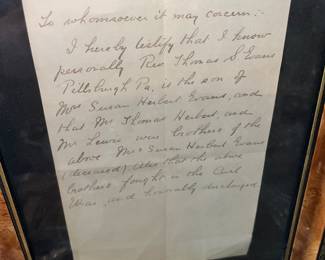 To whomsoever it may concern:-
I hereby testify that I know
personally Rev Thomas S Evans
Pittsburgh Pa, is the son of
Mrs Susan Herbert Evans, and
that Mr Thomas Herbert, and
Mr Lewis were brothers of the
above Mrs Susan Herbert Evans
(deceased) Also that the above
brothers fought in the Civil
War, and honorably discharged